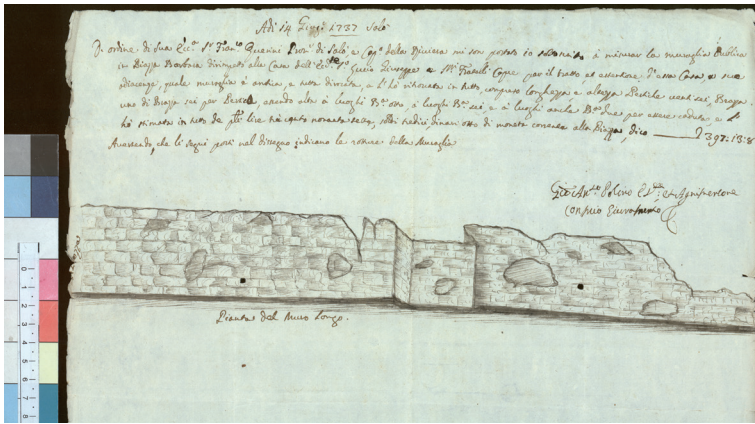 Adi 14 Giugº 1737 Salò
D'ordine di Sua Ecc.ª Sr Franº Querini Provr di Salò, e Capº della Riviera mi son portato io sottoscritto à misurar la muraglia Publica
in Piazza Barbara dirimpeto alla Casa dell' Ecc.te Sr Giuseppe e Mr Fratelli Coppe per il tratto ed estention d'essa Casa, e sue
adiacenze, quale muraglia è antica, e tutta diroccata, e l'hò ritrovata in tutto computo longhezza e altezza Pertiche venti sei, Brazza
uno di Brazza sei per Pertica, essendo alta à luoghi Bª otto, à luoghi Bª sei, e à luoghi anche Bª due per esser caduta, e l'
hò stimata in tutto de pli lire trecento novanta sette, soldi tredici, dinari otto di moneta corrente alla Piazza, dico L 397:13:8
Avertendo, che li segni posti nel dissegno indicano le rotture della Muraglia
Gio: Antº Polino et Agrimensore
con suo Giuramento
Pianta del Muro Longo.
0 1 2 3 4 5 6 7 8